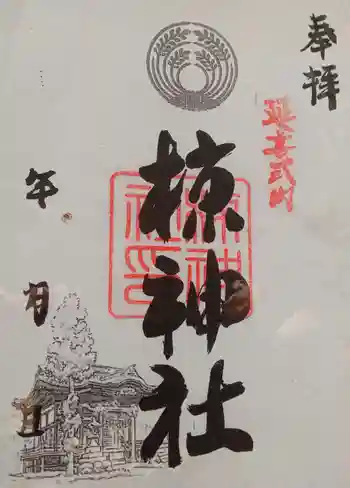 奉拝
延喜式内
椋神社
椋神社印
年 月 日